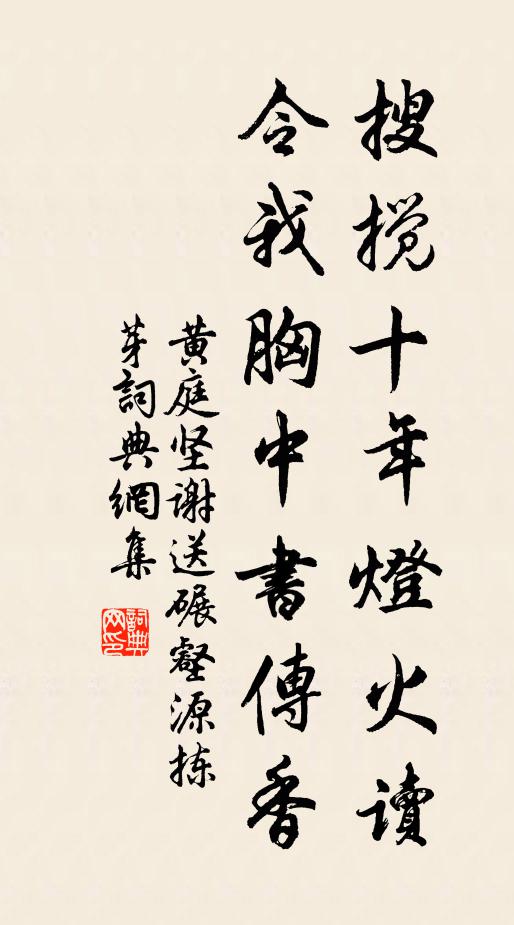 搜搅十年燈火讀
令我胸中書傳香
黄庭坚謝送碾壑源拣
芽詞典網集
詞典网印